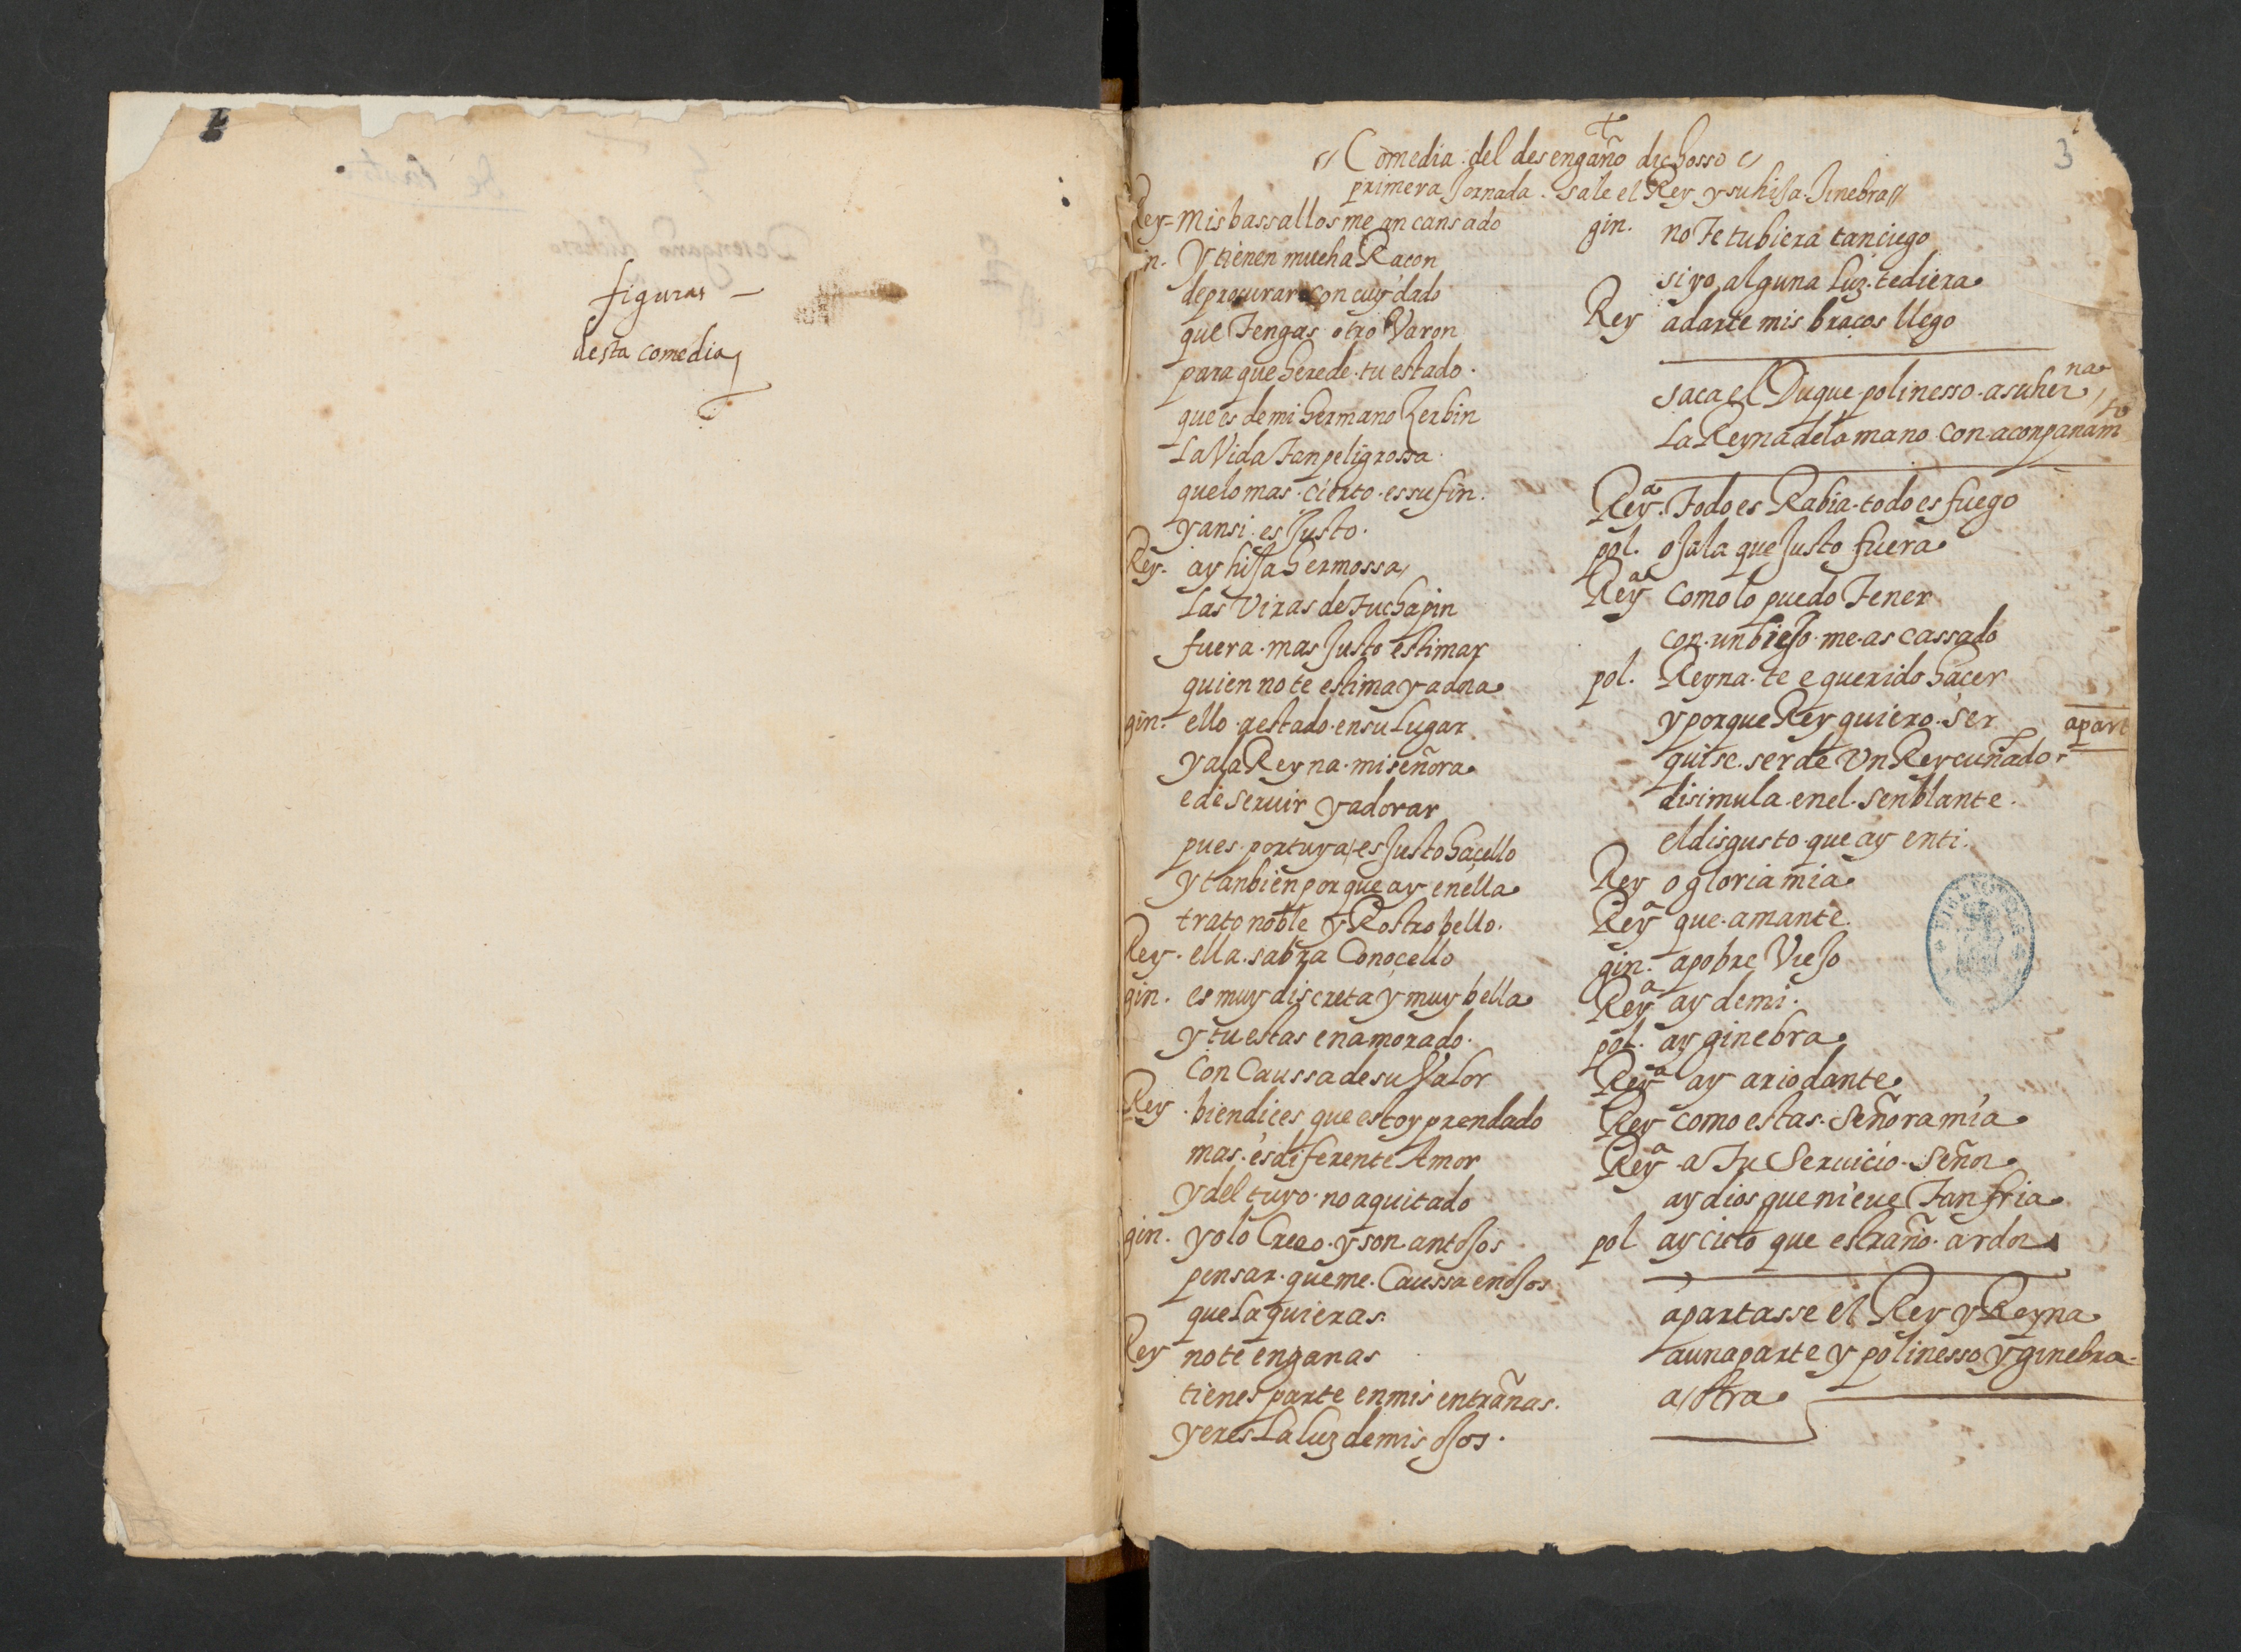 figuras —
desta comedia
3
Comedia del desengaño dichosso
primera Jornada . sale el Rey y su hiJa Jinebra
Rey = mis bassallos me an cansado
in. y tienen mucha Raçon
de procurar con cuydado
que Tengas otro Varon
para que herede tu estado .
que es de mi hermano Zerbin
La Vida Tan peligrossa
que lo mas cierto es su fin .
y ansi es Justo .
Rey . ay hiJa hermossa
Las Viras de Tu chapin
fuera mas Justo estimar
quien no te estima y adora
gin . ello a estado en su Lugar
y a la Reyna mi señora
e de seruir y adorar
pues por tuya es Justo haçello
y tanbien porque ay en ella
trato noble y Rostro bello .
Rey . ella sabra Conoçello
gin . es muy discreta y muy bella
y tu estas enamorado .
Con Caussa de su Valor
Rey . bien dices que estoy prendado
mas es diferente Amor
y del tuyo no a quitado
gin . yo lo Creo y son antoJos
pensar que me Caussa enoJos
que La quieras .
Rey no te enganas
tienes parte en mis entrañas .
y eres La luz de mis oJos .
gin . no Te tubiera tan ciego
si yo alguna Luz te diera
Rey a darte mis braços llego
saca el Duque polinesso a su herna
La Reyna de la mano con aconpanamto
Reya . Todo es Rabia todo es fuego
pol . oJala que Justo fuera
Reya Como lo puedo Tener
con un bieJo me as cassado
pol . Reyna te e querido haçer
y porque Rey quiero ser
apart
quise ser de Vn Rey cuñado
disimula en el senblante .
el disgusto que ay en ti .
Rey o gloria mia
Reya que amante .
gin . a pobre VieJo
Reya ay de mi .
pol . ay ginebra
Reya ay ariodante
Rey como estas Señora mia
Reya a Tu Seruicio Señor
ay dios que nieue Tan fria
pol ay cielo que estraño ardor
apartasse el Rey y Reyna
a una parte y polinesso y ginebra
a otra